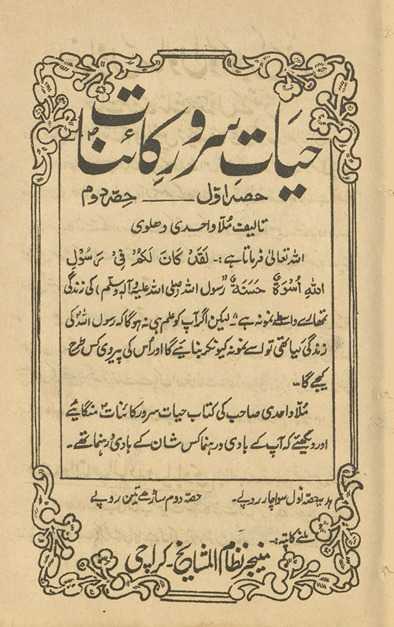 حیات سرور کائنات
حصہ اوّل ــــــ حصہ دوم
تالیف مُلّا واحدی دہلوی
اللہ تعالیٰ فرماتا ہے:۔ لَقَدْ كَانَ لَكُمْ فِیْ رَسُوْلِ
اللّٰهِ اُسْوَةٌ حَسَنَةٌ "رسول اللہ (صلی اللہ علیہ وآلہ وسلم) کی زندگی
تمھارے واسطے نمونہ ہے" لیکن اگر آپ کو علم ہی نہ ہو گا کہ رسول اللہ کی
زندگی کیا تھی تو اسے نمونہ کیونکر بنائیے گا اور اُس کی پیروی کس طرح
کیجے گا۔
مُلّا واحدی صاحب کی کتاب حیات سرور کائنات منگائیے
اور دیکھئے کہ آپ کے ہادی و رہنما کس شان کے ہادی و رہنما تھے۔
ہدیہ حصہ اول سوا چار روپے۔ حصہ دوم ساڑھے تین روپے
ملنے کا پتہ:۔
منیجر نظام المشائخ۔ کراچی